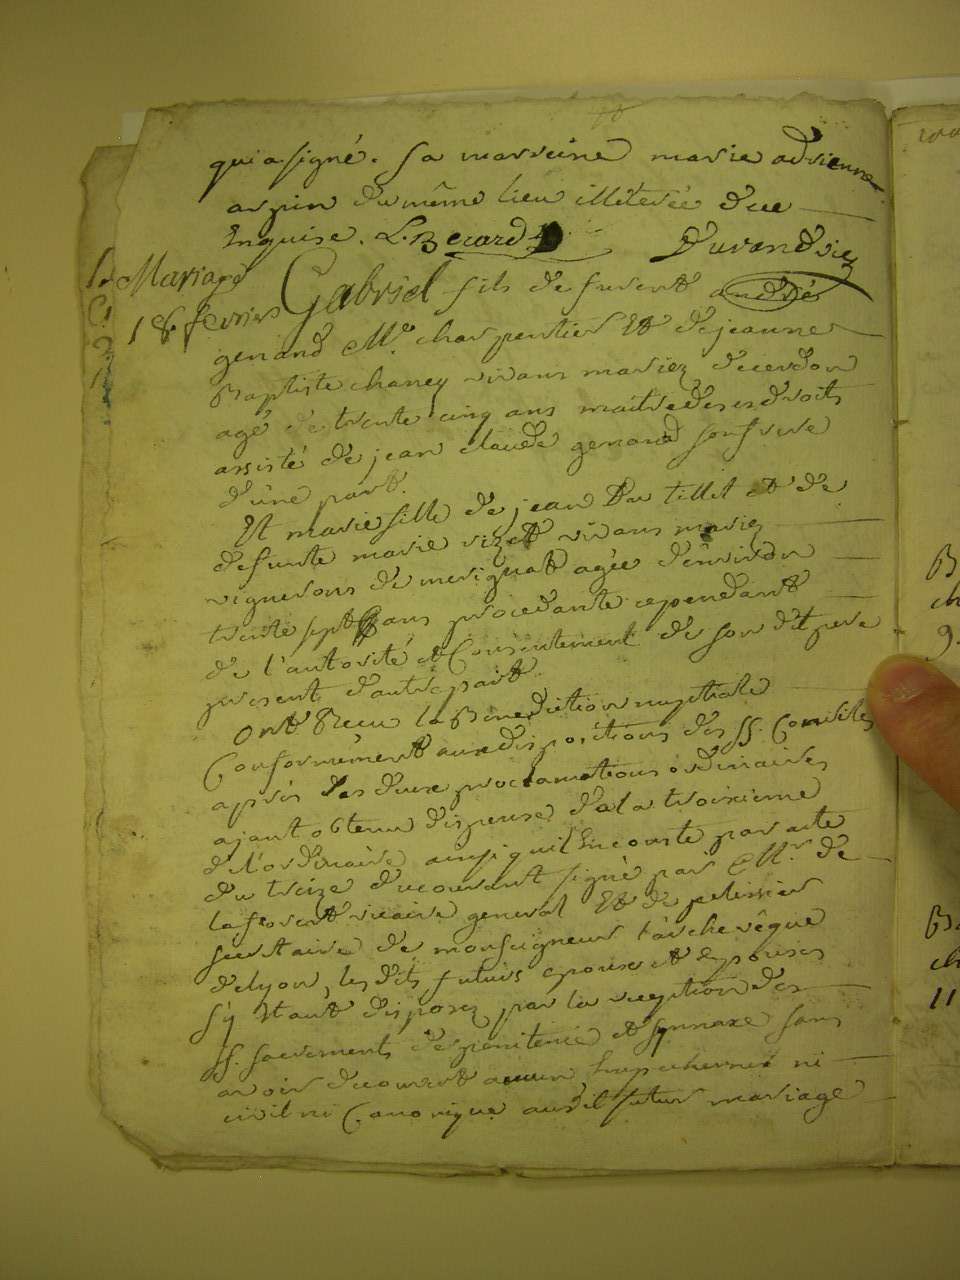 qui a signé. sa marreine marie adrienne
arpin du même lieu illiterée due
Enquise. L. Berard Durand vic
Mariage
18. fevrier
Gabriel fils de furent andré
genand M.e charpentier Et de jeanne
Baptiste chaney vivans mariez de cerdon
agé de trente cinq ans maitre de ses droits
assisté de jean claude genand son frere
d'une part.
Et marie fille de jean Du tillet et de
defunte marie vizet vivans mariez
vignerons de merignat agée d'environ
trente sept ans procedante cependant
de l'autorité et Consentement de son dit pere
present d'autre part.
Ont Recu la Benediction nuptiale
Conformément aux dispositions des SS. Conciles
après les deux proclamations ordinaires
ajant obtenu dispense de la troisieme
de l'ordinaire ainsi quil En conste par acte
du treize du courant signé par Mr. de
lafforest vicaire general Et de pelissier
secretaire de monseigneur l'archevêque
de lyon, les dits futurs epoux et Epouses
s'y Etant disposez par la reception des
SS. sacremens de penitence et synnaxe sans
avoir decouvert aucun Empechemet ni
civil ni Canonique audit futur mariage